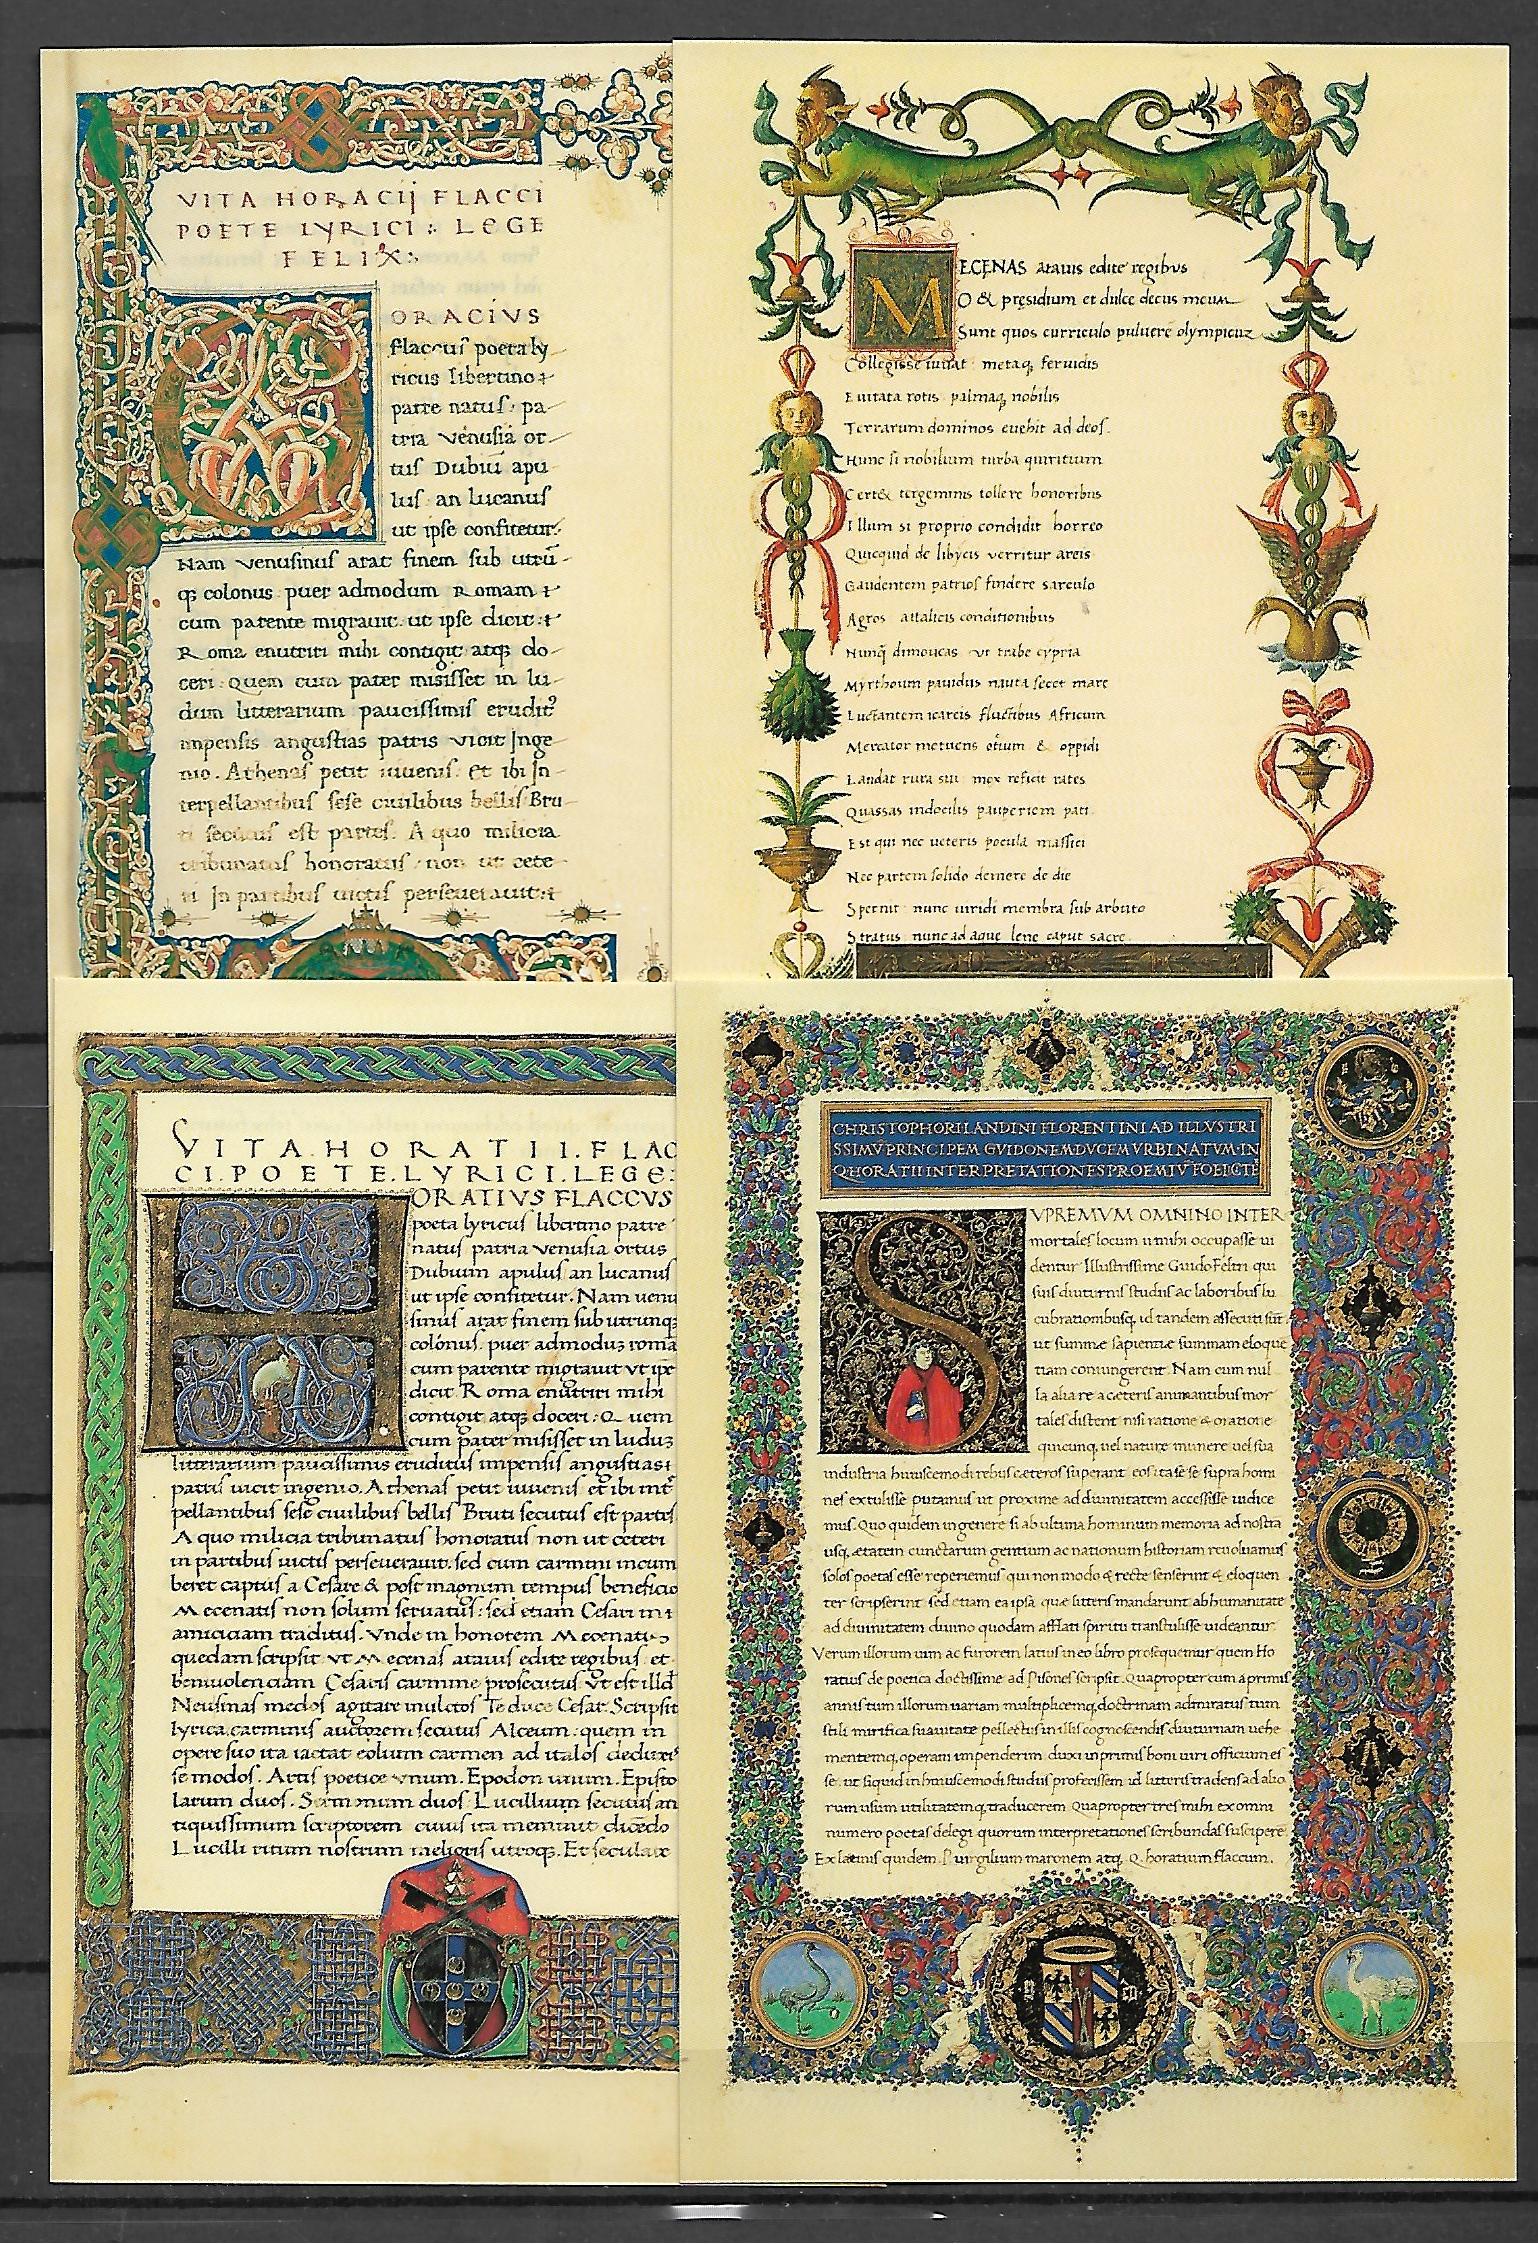 VITA HORACIJ FLACCI
POETE LYRICI : LEGE
FELIX:
ORACIVS
flaccuſ poeta ly
ricus libertino ⁊
patre natuſ: pa-
tria venuſia or-
tuſ Dubiū apu
luſ an lucanuſ
ut ipſe confitetur.
Nam venuſinuſ arat finem ſub utrū-
qꝫ colonus puer admodum Romam ⁊
cum parente migrauit: ut ipſe dicit: ⁊
Roma enutriri mihi contigit atqꝫ do-
ceri: Quem cum pater miſiſſet in lu-
dum litterarium pauciſſimiſ erudit9
impenſis anguſtias patris vicit Inge-
nio. Athenaſ petit iuueniſ. et ibi In-
terpellantibuſ ſeſe ciuilibus belliſ Bru-
ti ſecutuſ eſt parteſ. A quo milicia
tribunatuſ honoratuſ: non ut cete-
ri In partibuſ uictiſ perſeuerauit: ⁊
M
ECENAS atauis edite regibus
O & pręsidium et dulce decus meum
Sunt quos curriculo puluere olympicuz
Collegisse iuuat: metaqꝫ feruidis
Euitata rotis palmaqꝫ nobilis
Terrarum dominos euehit ad deoſ.
Hunc ſi nobilium turba quiritium
Certet tergeminis tollere honoribus
Illum si proprio condidit horreo
Quicquid de libycis verritur areis
Gaudentem patrioſ findere sarculo
Agros attalicis conditionibus
Nunq̄ dimoueas vt trabe cypria
Myrthoum pauidus nauta ſecet mare
Luctantem icareis fluctibus Africum
Mercator metuens otium & oppidi
Laudat rura sui mox reficit rates
Quassas indocilis pauperiem pati.
Est qui nec ueteris pocula maſſici
Nec partem ſolido demere de die
Spernit nunc uiridi membra ſub arbuto
Stratus nunc ad aque lene caput sacre
VITA.HORATII.FLAC
CI.POETE.LYRICI.LEGE:
H
ORATIVS FLACCVS
poeta lyricuſ libertino patre
natuſ patria venuſia ortus
Dubium apulus an lucanuſ
ut ipſe confitetur. Nam uenu
ſinuſ arat finem ſub utrunqꝫ
colonuſ. puer admoduꝫ roma
cum parente migrauit vt ipſe
dicit Roma enutriri mihi
contigit atqꝫ doceri: Quem
cum pater miſiſſet in luduꝫ
litterarium pauciſſimis eruditus impenſiſ anguſtias ⁊
patriſ uicit ingenio. Athenaſ petit iuueniſ et ibi int̄
pellantibuſ ſeſe ciuilibus belliſ Bruti ſecutuſ eſt parteſ
A quo milicia tribunatuſ honoratuſ non ut ceteri
in partibuſ uictiſ perſeuerauit. ſed cum carmini incum
beret captuſ a Ceſare & poſt magnum tempuſ beneficio
Mecenatis non ſolum ſeruatuſ: ſed etiam Ceſari in ⁊
amiciciam tradituſ. Vnde in honorem Mecenatis
quedam ſcripſit vt Mecenaſ atauiſ edite regibuſ et
beniuolenciam Ceſariſ carmine proſecutuſ vt eſt illd
Neuſinas medoſ agitare inultos Te duce Ceſar. Scripſit
lyrica. carminiſ auctorem ſecutus Alceum: quem in
opere ſuo ita iactat eolium carmen ad italoſ deduxi
ſe modoſ. Artiſ poetice vnum. Epodon unum. Epiſto
larum duoſ. Sermonum duoſ Lucillium ſecutuſ an
tiquiſſimum ſcriptorem cuiuſ ita meminit dicēdo
Lucilli ritum noſtrum melioriſ utroqꝫ. Et ſeculare
CHRISTOPHORI LANDINI FLORENTINI AD ILLVSTRI
SSIMV̄ PRINCIPEM GVIDONEM DVCEM VRBINATVM.IN
Q HORATII INTERPRETATIONES PROEMIV̄ FOELICITĒ
S
VPREMVM OMNINO INTER
mortales locum ii mihi occupaſſe ui
dentur Illuſtriſſime Guido Feltri qui
ſuis diuturniſ ſtudiis ac laboribuſ lu
cubrationibuſqꝫ id tandem aſſecuti ſūt
ut ſummæ ſapientiæ ſummam eloque
tiam coniungerent. Nam cum nul
la alia re a cæteris animantibuſ mor
tales diſtent niſi ratione & oratione
quicunqꝫ uel naturæ munere uel ſua
induſtria huiuſcemodi rebus cæteros ſuperant eos ita ſe ſe ſupra homi
nes extuliſſe putamus ut proxime ad diuinitatem acceſſiſſe iudice
mus. Quo quidem in genere ſi ab ultima hominum memoria ad noſtra
uſqꝫ ætatem cunctarum gentium ac nationum hiſtoriam reuoluamus
ſolos poetas eſſe reperiemus qui non modo & recte ſenſerint & eloquen
ter ſcripſerint ſed etiam ea ipſa quæ litteris mandarunt ab humanitate
ad diuinitatem diuino quodam afflati ſpiritu tranſtuliſſe uideantur
Verum illorum uim ac furorem latius in eo libro proſequemur quem Ho
ratius de poetica doctiſſime ad Piſones ſcripſit. Quapropter cum a primis
annis tum illorum uariam multiplicemqꝫ doctrinam admiratus tum
ſtili mirifica ſuauitate pellectus in illis cognoſcendis diuturnam uehe
mentemqꝫ operam impenderim duxi in primis boni uiri officium eſ
ſe. ut ſiquid in huiuſcemodi ſtudiis profeciſſem id litteris tradens ad alio
rum uſum utilitatemqꝫ traducerem Quapropter tres mihi ex omni
numero poetas delegi quorum interpretationes ſcribundas ſuſcipere
Ex latinis quidem P. uirgilium maronem atqꝫ Q. horatium flaccum.